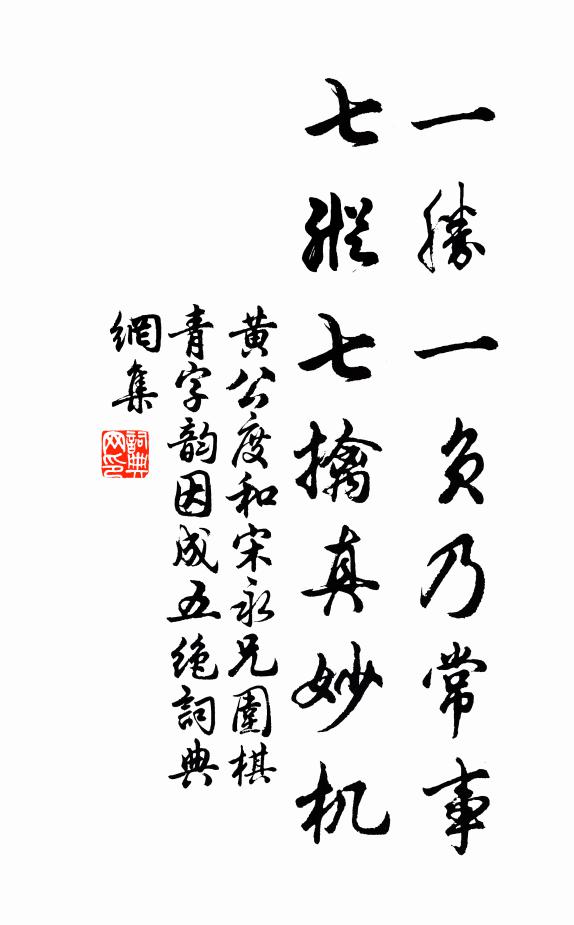 一勝一负乃常事
七縱七擒真妙机
黄公度和宋永兄圍棋
青字韵因成五绝詞典
網集
詞典
网印